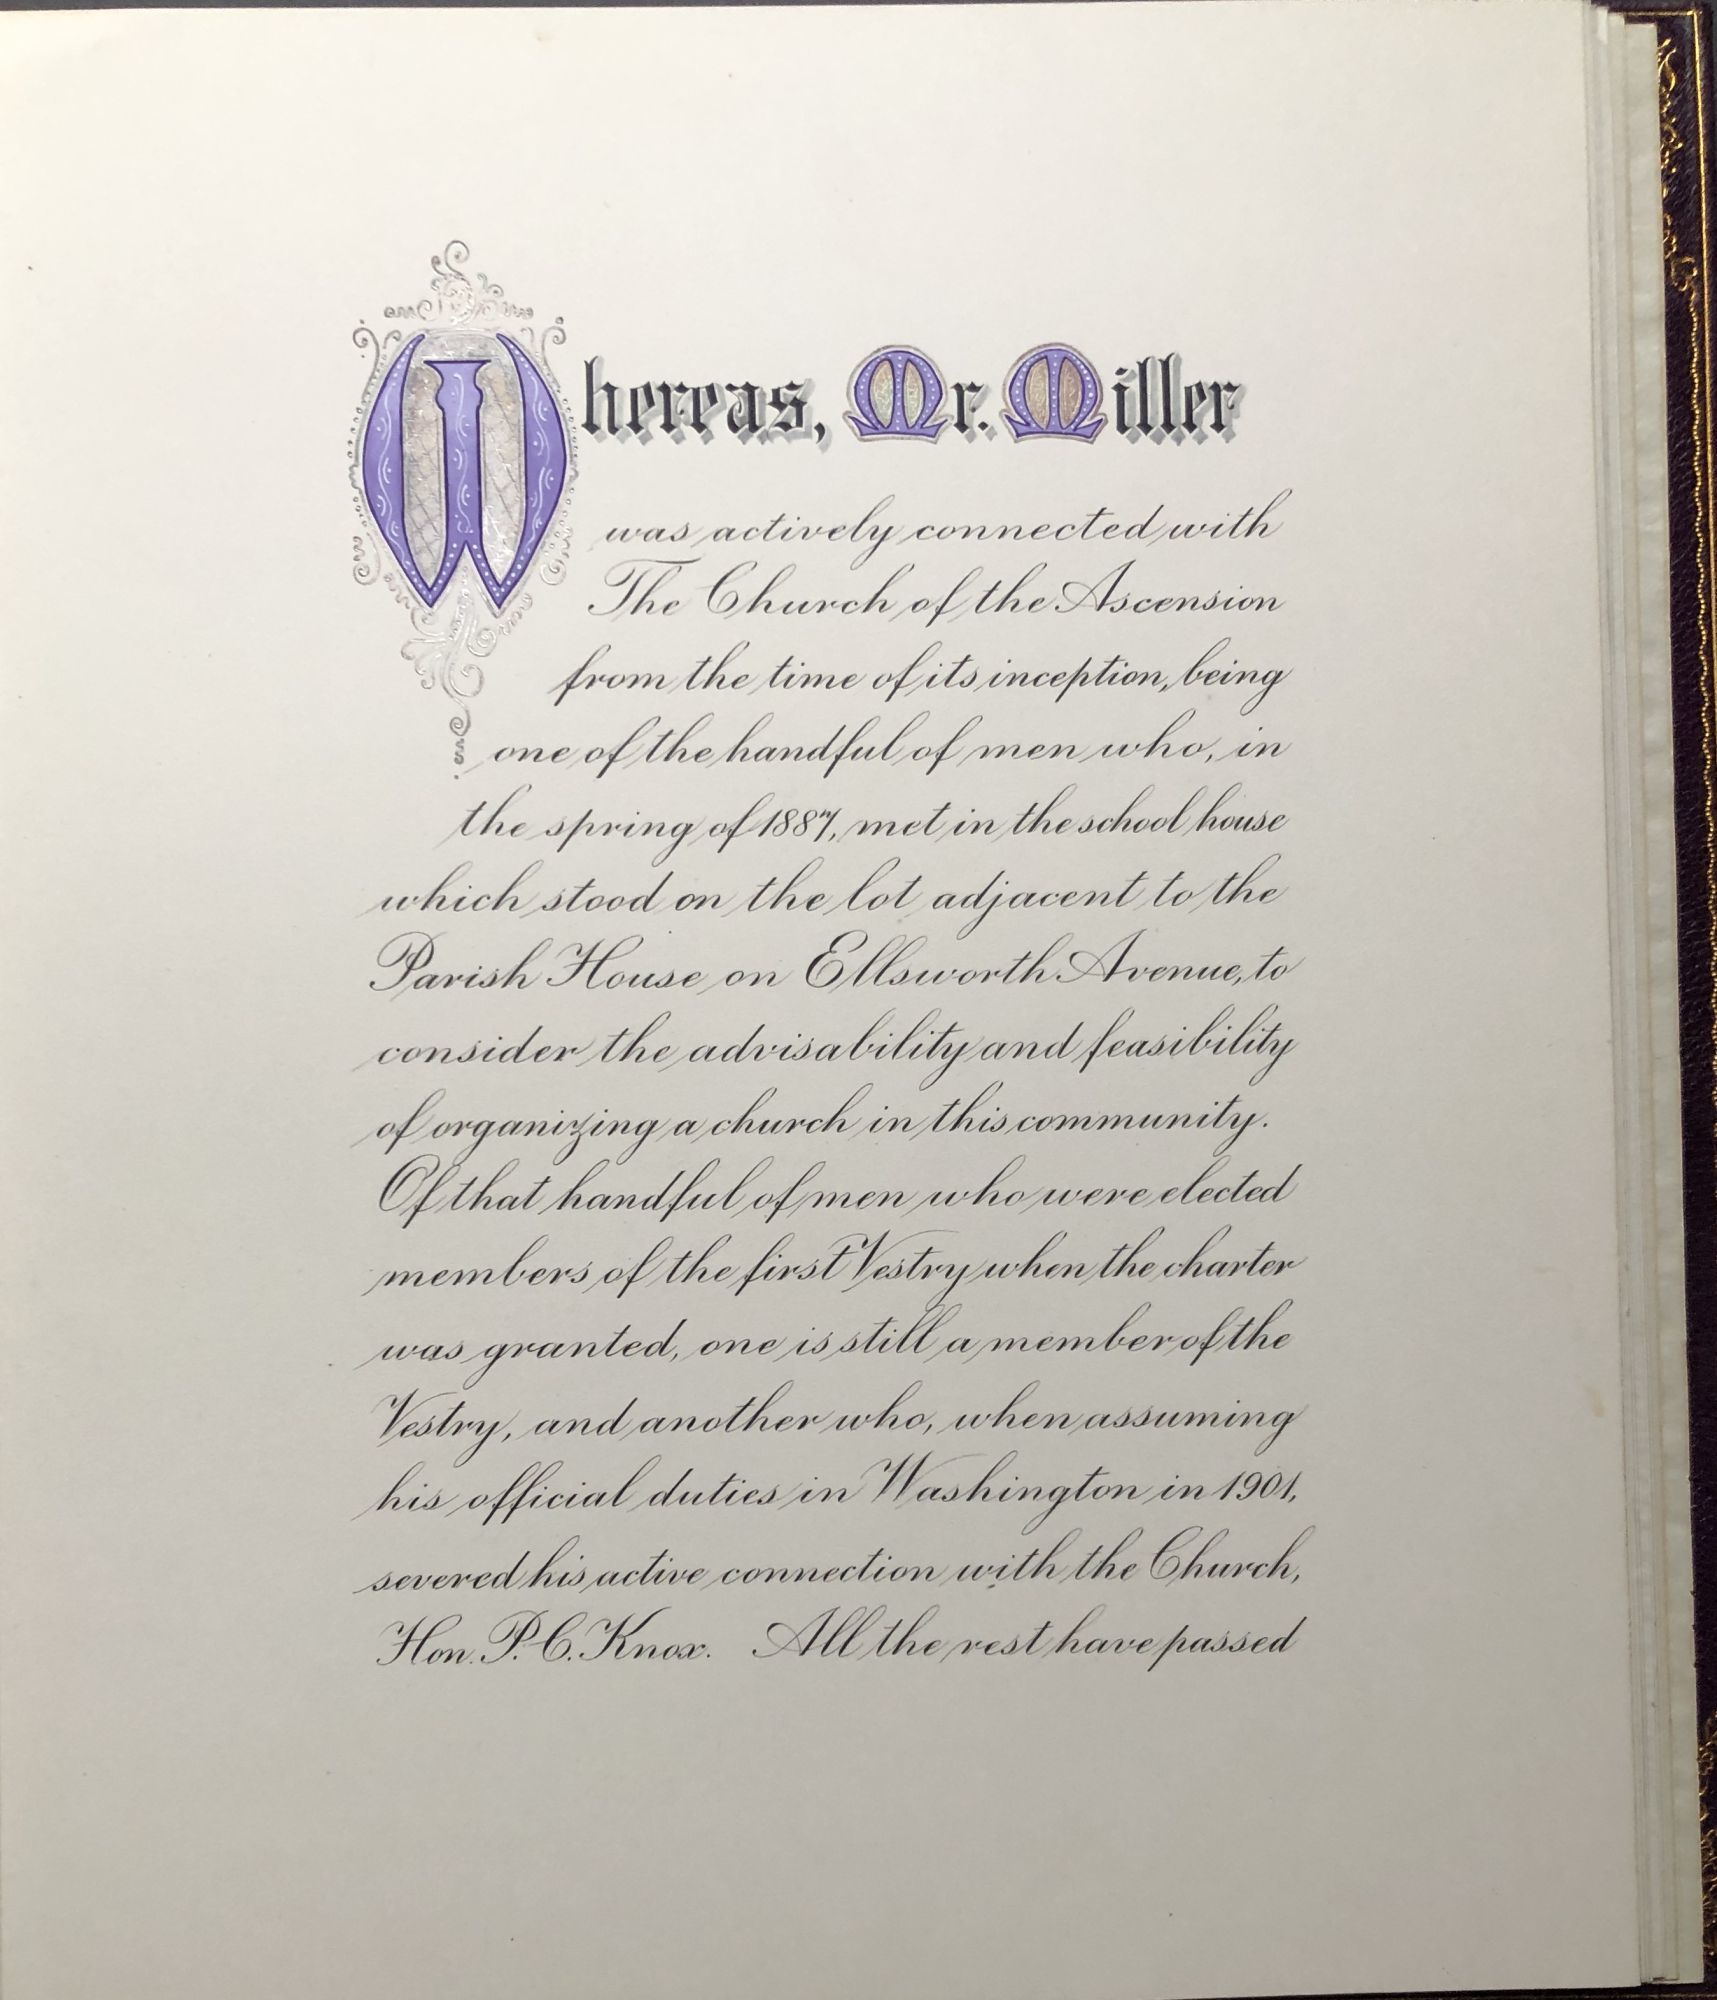 Whereas, Mr. Miller
was actively connected with
The Church of the Ascension
from the time of its inception, being
one of the handful of men who, in
the spring of 1887, met in the school house
which stood on the lot adjacent to the
Parish House on Ellsworth Avenue, to
consider the advisability and feasibility
of organizing a church in this community.
Of that handful of men who were elected
members of the first Vestry when the charter
was granted, one is still a member of the
Vestry, and another who, when assuming
his official duties in Washington in 1901,
severed his active connection with the Church,
Hon. P. C. Knox. All the rest have passed